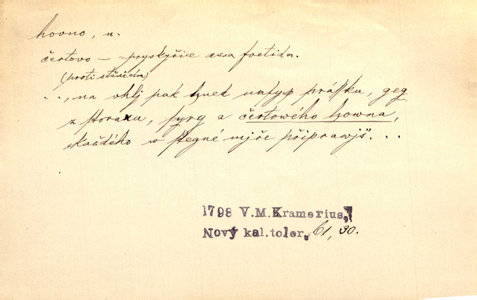 hovno, n.
čertovo – pryskyřice assa foetida.
(proti štěnicím)
..., na ohěj pak hnek prášku, geg
z storaxu, syry a čertového howna,
každého w stegné mjře připrawjš...
1798 V.M.Kramerius,
Nový kal.toler, 61, 30.